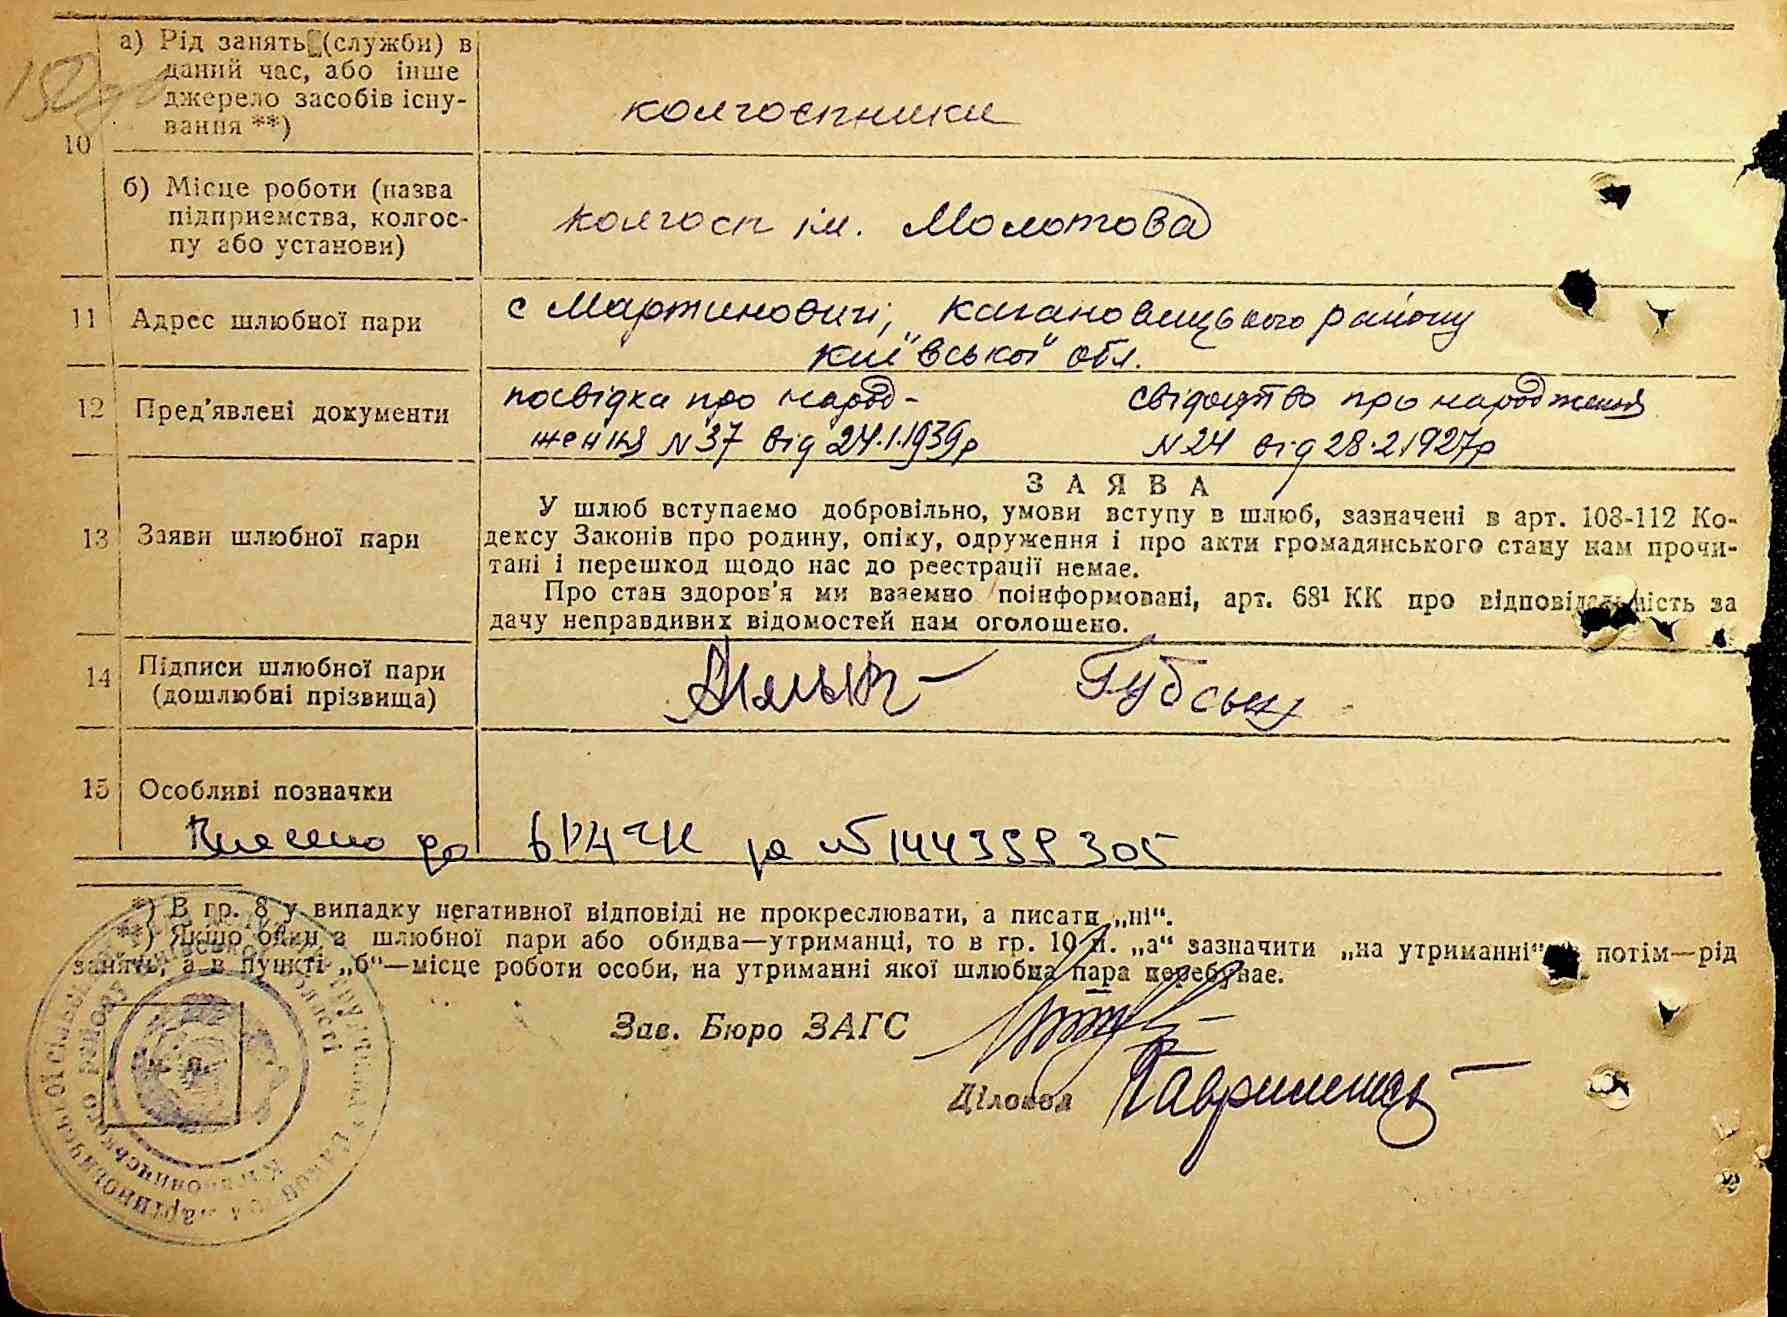 10
а) Рід занять (служби) в
даний час, або інше
джерело засобів існу-
вання **)
колгоспники
б) Місце роботи (назва
підприємства, колгос-
пу або установи)
колгосп ім. Молотова
11 Адрес шлюбної пари
с Мартиновичі, Кагановицького району
Київської обл.
12 Пред'явлені документи
посвідка про народ-
ження N 37 від 24.1.1939р
свідоцтво про народження
N 24 від 28.2.1927р
13 Заяви шлюбної пари
ЗАЯВА
У шлюб вступаємо добровільно, умови вступу в шлюб, зазначені в арт. 108-112 Ко-
дексу Законів про родину, опіку, одруження і про акти громадянського стану нам прочи-
тані і перешкод щодо нас до реєстрації немає.
Про стан здоров'я ми взаємно поінформовані, арт. 68¹ КК про відповідальність за
дачу неправдивих відомостей нам оголошено.
14 Підписи шлюбної пари
(дошлюбні прізвища)
15 Особливі позначки
Внесено до ДРАЦС за № 144359305
*) В гр. 8 у випадку негативної відповіді не прокреслювати, а писати „ні“.
**) Якщо один з шлюбної пари або обидва—утриманці, то в гр. 10 п. „а“ зазначити „на утриманні“ потім—рід
занять, а в пункті „б“—місце роботи особи, на утриманні якої шлюбна пара перебуває.
Зав. Бюро ЗАГС
Діловод